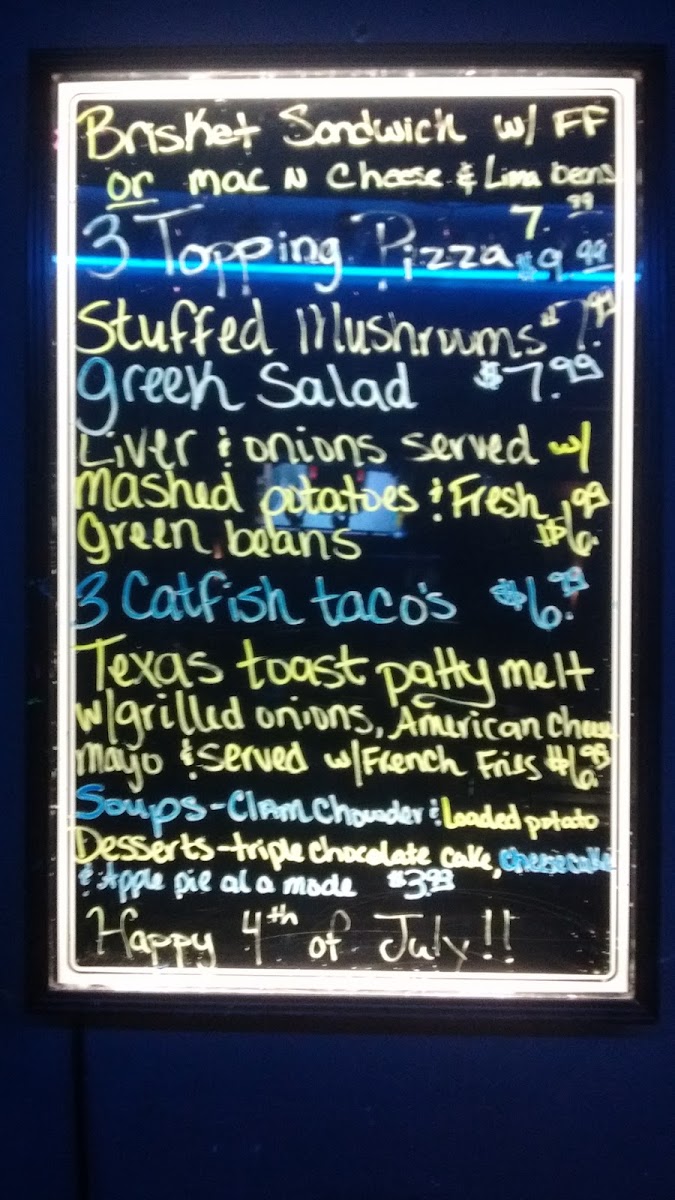 Brisket Sandwich w/ FF
or mac N Cheese & Lima beans
7.99
3 Topping Pizza $9.99
Stuffed Mushrooms $7.99
greek Salad $7.99
Liver & onions served w/
mashed potatoes & Fresh
green beans $6.99
3 Catfish taco's $6.99
Texas toast patty melt
w/grilled onions, American Cheese
mayo & served w/French Fries $6.99
Soups - Clam Chowder & Loaded potato
Desserts - triple chocolate cake, cheesecake
& Apple pie al a mode $3.99
Happy 4th of July!!